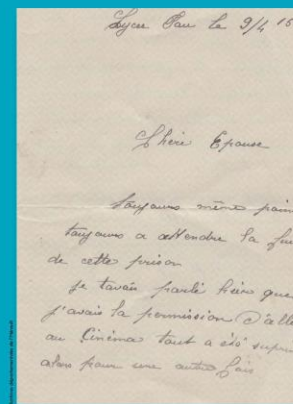 Lycée Pau le 9/4 16
Chère Epouse
toujours même pain
toujours a attendre la fin
de cette prison
je tavais parlé hier que
j'avais la permission d'alle
au Cinéma tout a été supri
alors pour une autre fois